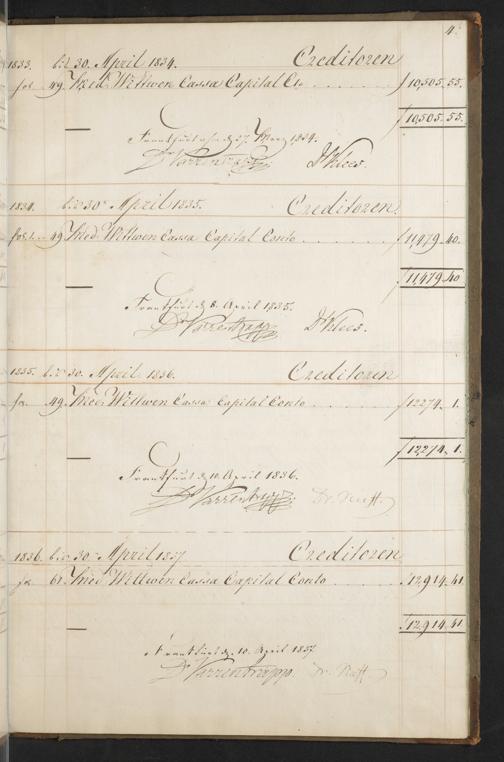 4.
1833. bis 30. April 1834. Creditoren
fol. 49. Med. Wittwen Cassa Capital Cto. f 10,505. 55.
f 10,505. 55.
Frankfurt d. 27. 1834.
Dr Varrentrapp Dr Kloss.
1834. bis 30. April 1835. Creditoren.
fol. 49. Med. Wittwen Cassa Capital Conto f 11,479. 40.
f 11,479. 40
Frankfurt d. 8. April 1835.
Dr Varrentrapp Dr Kloss.
1835. bis 30. April 1836. Creditoren
fo. 49. Med. Wittwen Cassa Capital Conto f 12274. 1.
f 12274. 1.
Frankfurt d. 10. April 1836.
Dr Varrentrapp Dr.
1836. bis 30. April 1837. Creditoren
fo. 61. Med. Wittwen Cassa Capital Conto f 12,914. 41.
f 12,914. 41
Frankfurt d. 10. April 1837.
Dr Varrentrapp. Dr.